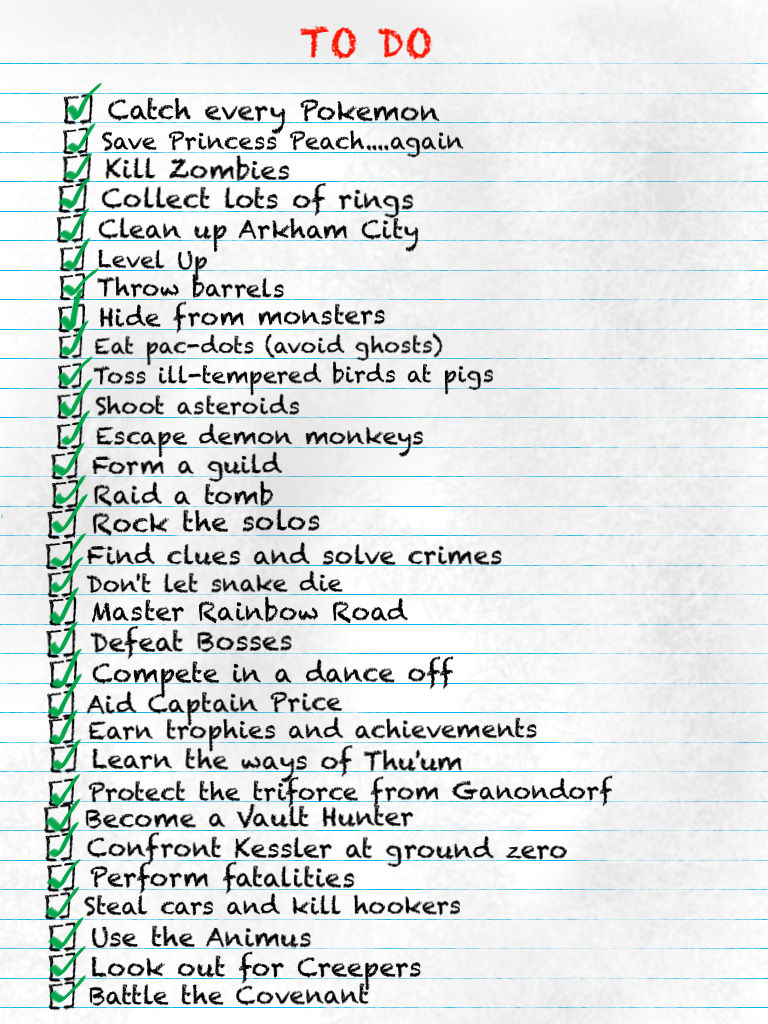 TO DO
Catch every Pokemon
Save Princess Peach....again
Kill Zombies
Collect lots of rings
Clean up Arkham City
Level Up
Throw barrels
Hide from monsters
Eat pac-dots (avoid ghosts)
Toss ill-tempered birds at pigs
Shoot asteroids
Escape demon monkeys
Form a guild
Raid a tomb
Rock the solos
Find clues and solve crimes
Don't let snake die
Master Rainbow Road
Defeat Bosses
Compete in a dance off
Aid Captain Price
Earn trophies and achievements
Learn the ways of Thu'um
Protect the triforce from Ganondorf
Become a Vault Hunter
Confront Kessler at ground zero
Perform fatalities
Steal cars and kill hookers
Use the Animus
Look out for Creepers
Battle the Covenant